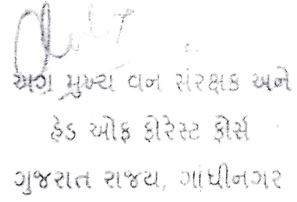 અગ્ર મુખ્ય વન સંરક્ષક અને
હેડ ઓફ ફોરેસ્ટ ફોર્સ
ગુજરાત રાજ્ય, ગાંધીનગર